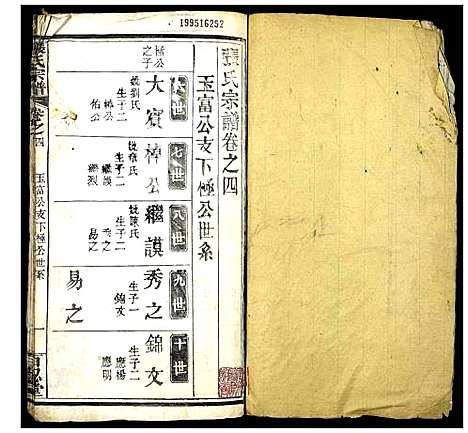 199516252
張氏宗譜卷之四
玉富公支下極公世系
六世
大寶
極公
之子
娶劉氏
生子二
樟公
佑公
七世
樟公
生子二
繼謨
繼烈
八世
繼謨
娶陳氏
生子二
秀之
易之
九世
秀之
生子一
錦文
易之
十世
錦文
生子二
應楊
應明
張氏宗譜
卷之四
玉富公支下極公世系
一